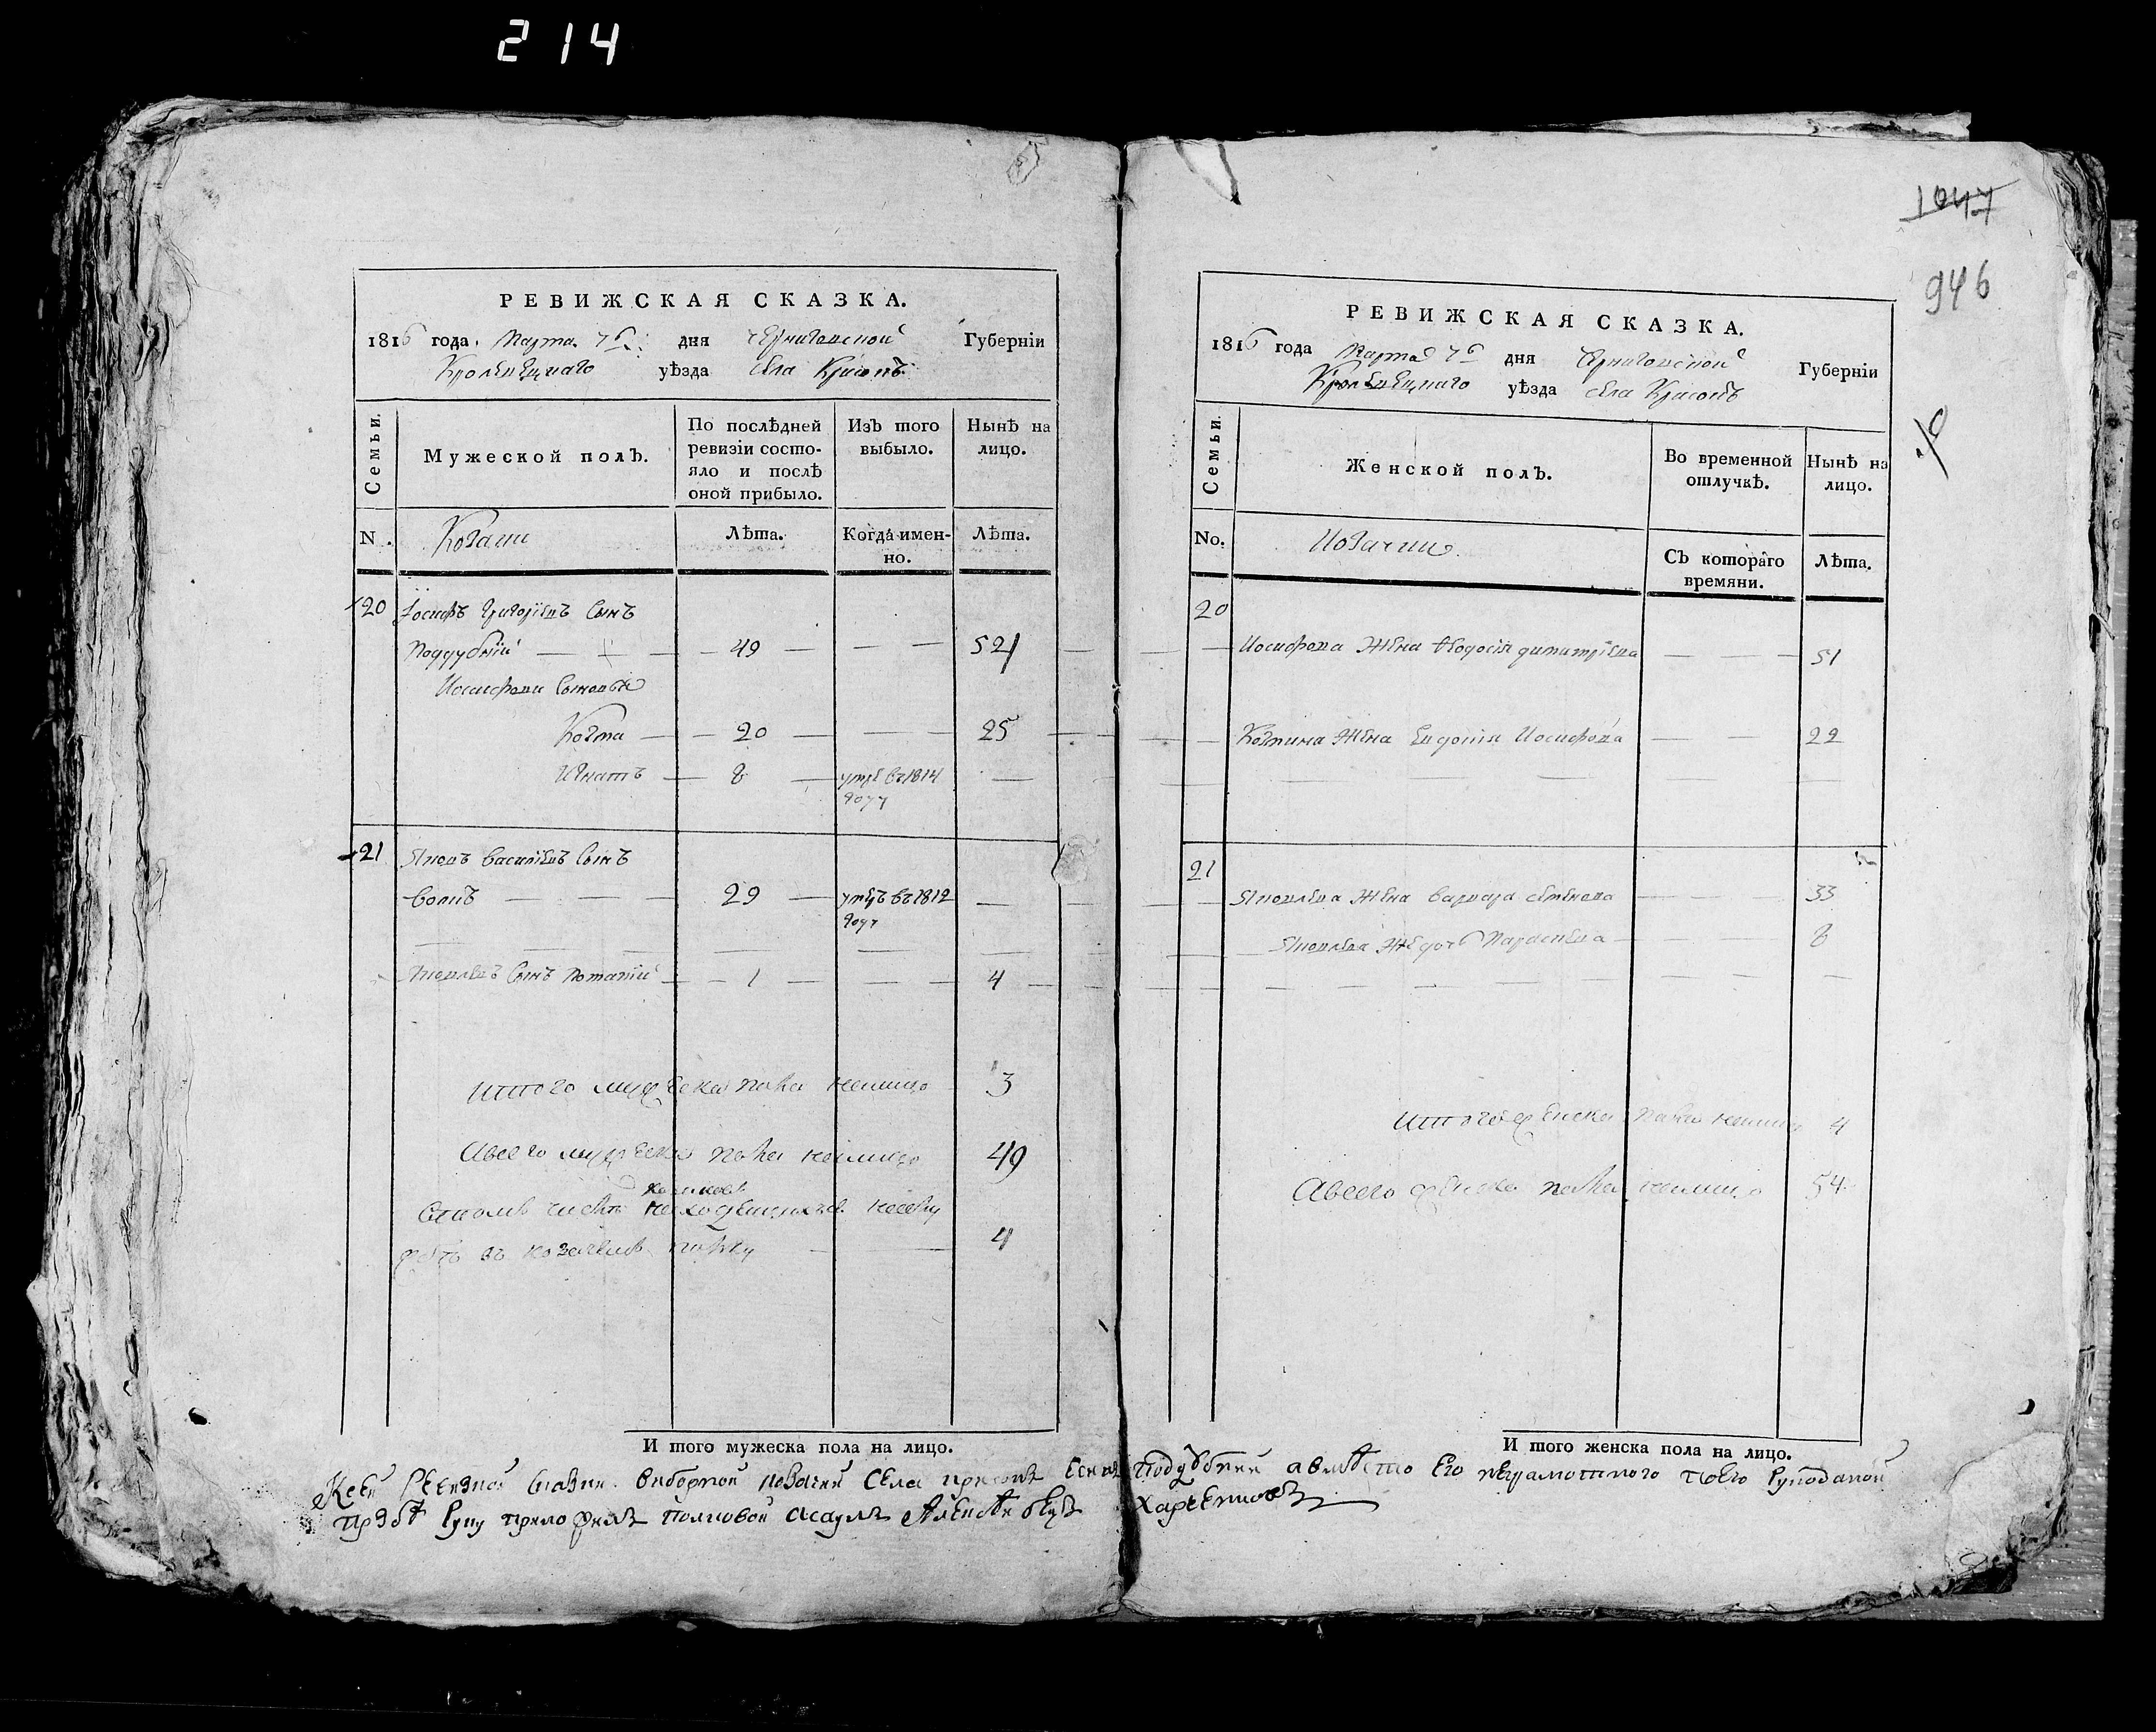 214
1047
946
РЕВИЖСКАЯ СКАЗКА.
1816 года. Марта 7б дня Черниговской Губерніи
Кролевецкаго уѣзда села
Семьи.
Мужеской полъ.
По послѣдней ревизіи состо-
яло и послѣ
оной прибыло.
Изъ того
выбыло.
Нынѣ на
лицо.
N.
Козаки
Лѣта.
Когда имен-
но.
Лѣта.
20 Іосифъ Григоріевъ сынъ
Поддубній 49 52
Иосифови сыновья
Козма 20 25
Игнатъ 8 умре въ 1814
году
21 Яковъ Василіевъ сынъ
Вовкъ 29 умръ въ 1812
году
Яковлевъ сынъ Потапій 1 4
Итого мужеска пола налицо 3
Авсего мужеска пола налицо 49
козаковъ
4
И того мужеска пола на лицо.
РЕВИЖСКАЯ СКАЗКА.
1816 года Марта 7б дня Черниговской Губерніи
Кролевецкаго уѣзда села
Семьи.
Женской полъ.
Во временной
отлучкѣ.
Нынѣ на
лицо.
No.
Козачки
Съ котораго
времяни.
Лѣта.
20
Иосифова жена Ѳеодосія Димитріева 51
Козмина жена Евдокія Иосифова 22
21
Яковлева жена Варвара Семенова 33
Яковлева же дочь Параскева 8
Итого женска пола налицо 4
Авсего женска пола налицо 54
И того женска пола на лицо.
Ксей Ревизкой сказки виборной козачій села Поддубній авмѣсто его неграмотного поего рукоданой
прозбѣ руку приложилъ полковой асаулъ Харкевичъ